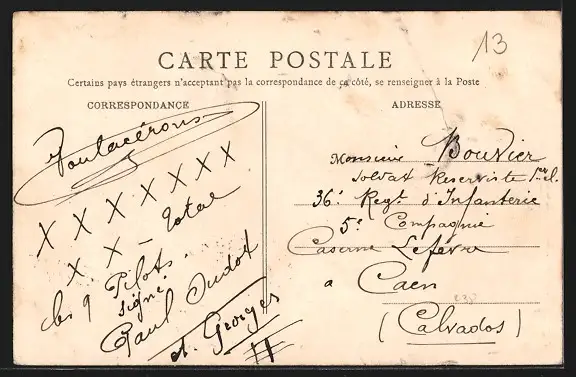 13
CARTE POSTALE
Certains pays étrangers n'acceptant pas la correspondance de ce côté, se renseigner à la Poste
CORRESPONDANCE
X X X X X X X
X X — Total
les 9 Pilots
signé
Paul Oudot
et Georges
ADRESSE
Monsieur Bouvier
Soldat Reserviste 1er cl.
36e Regt d'Infanterie
5e Compagnie
Caserne Lefévre
a Caen
(Calvados)